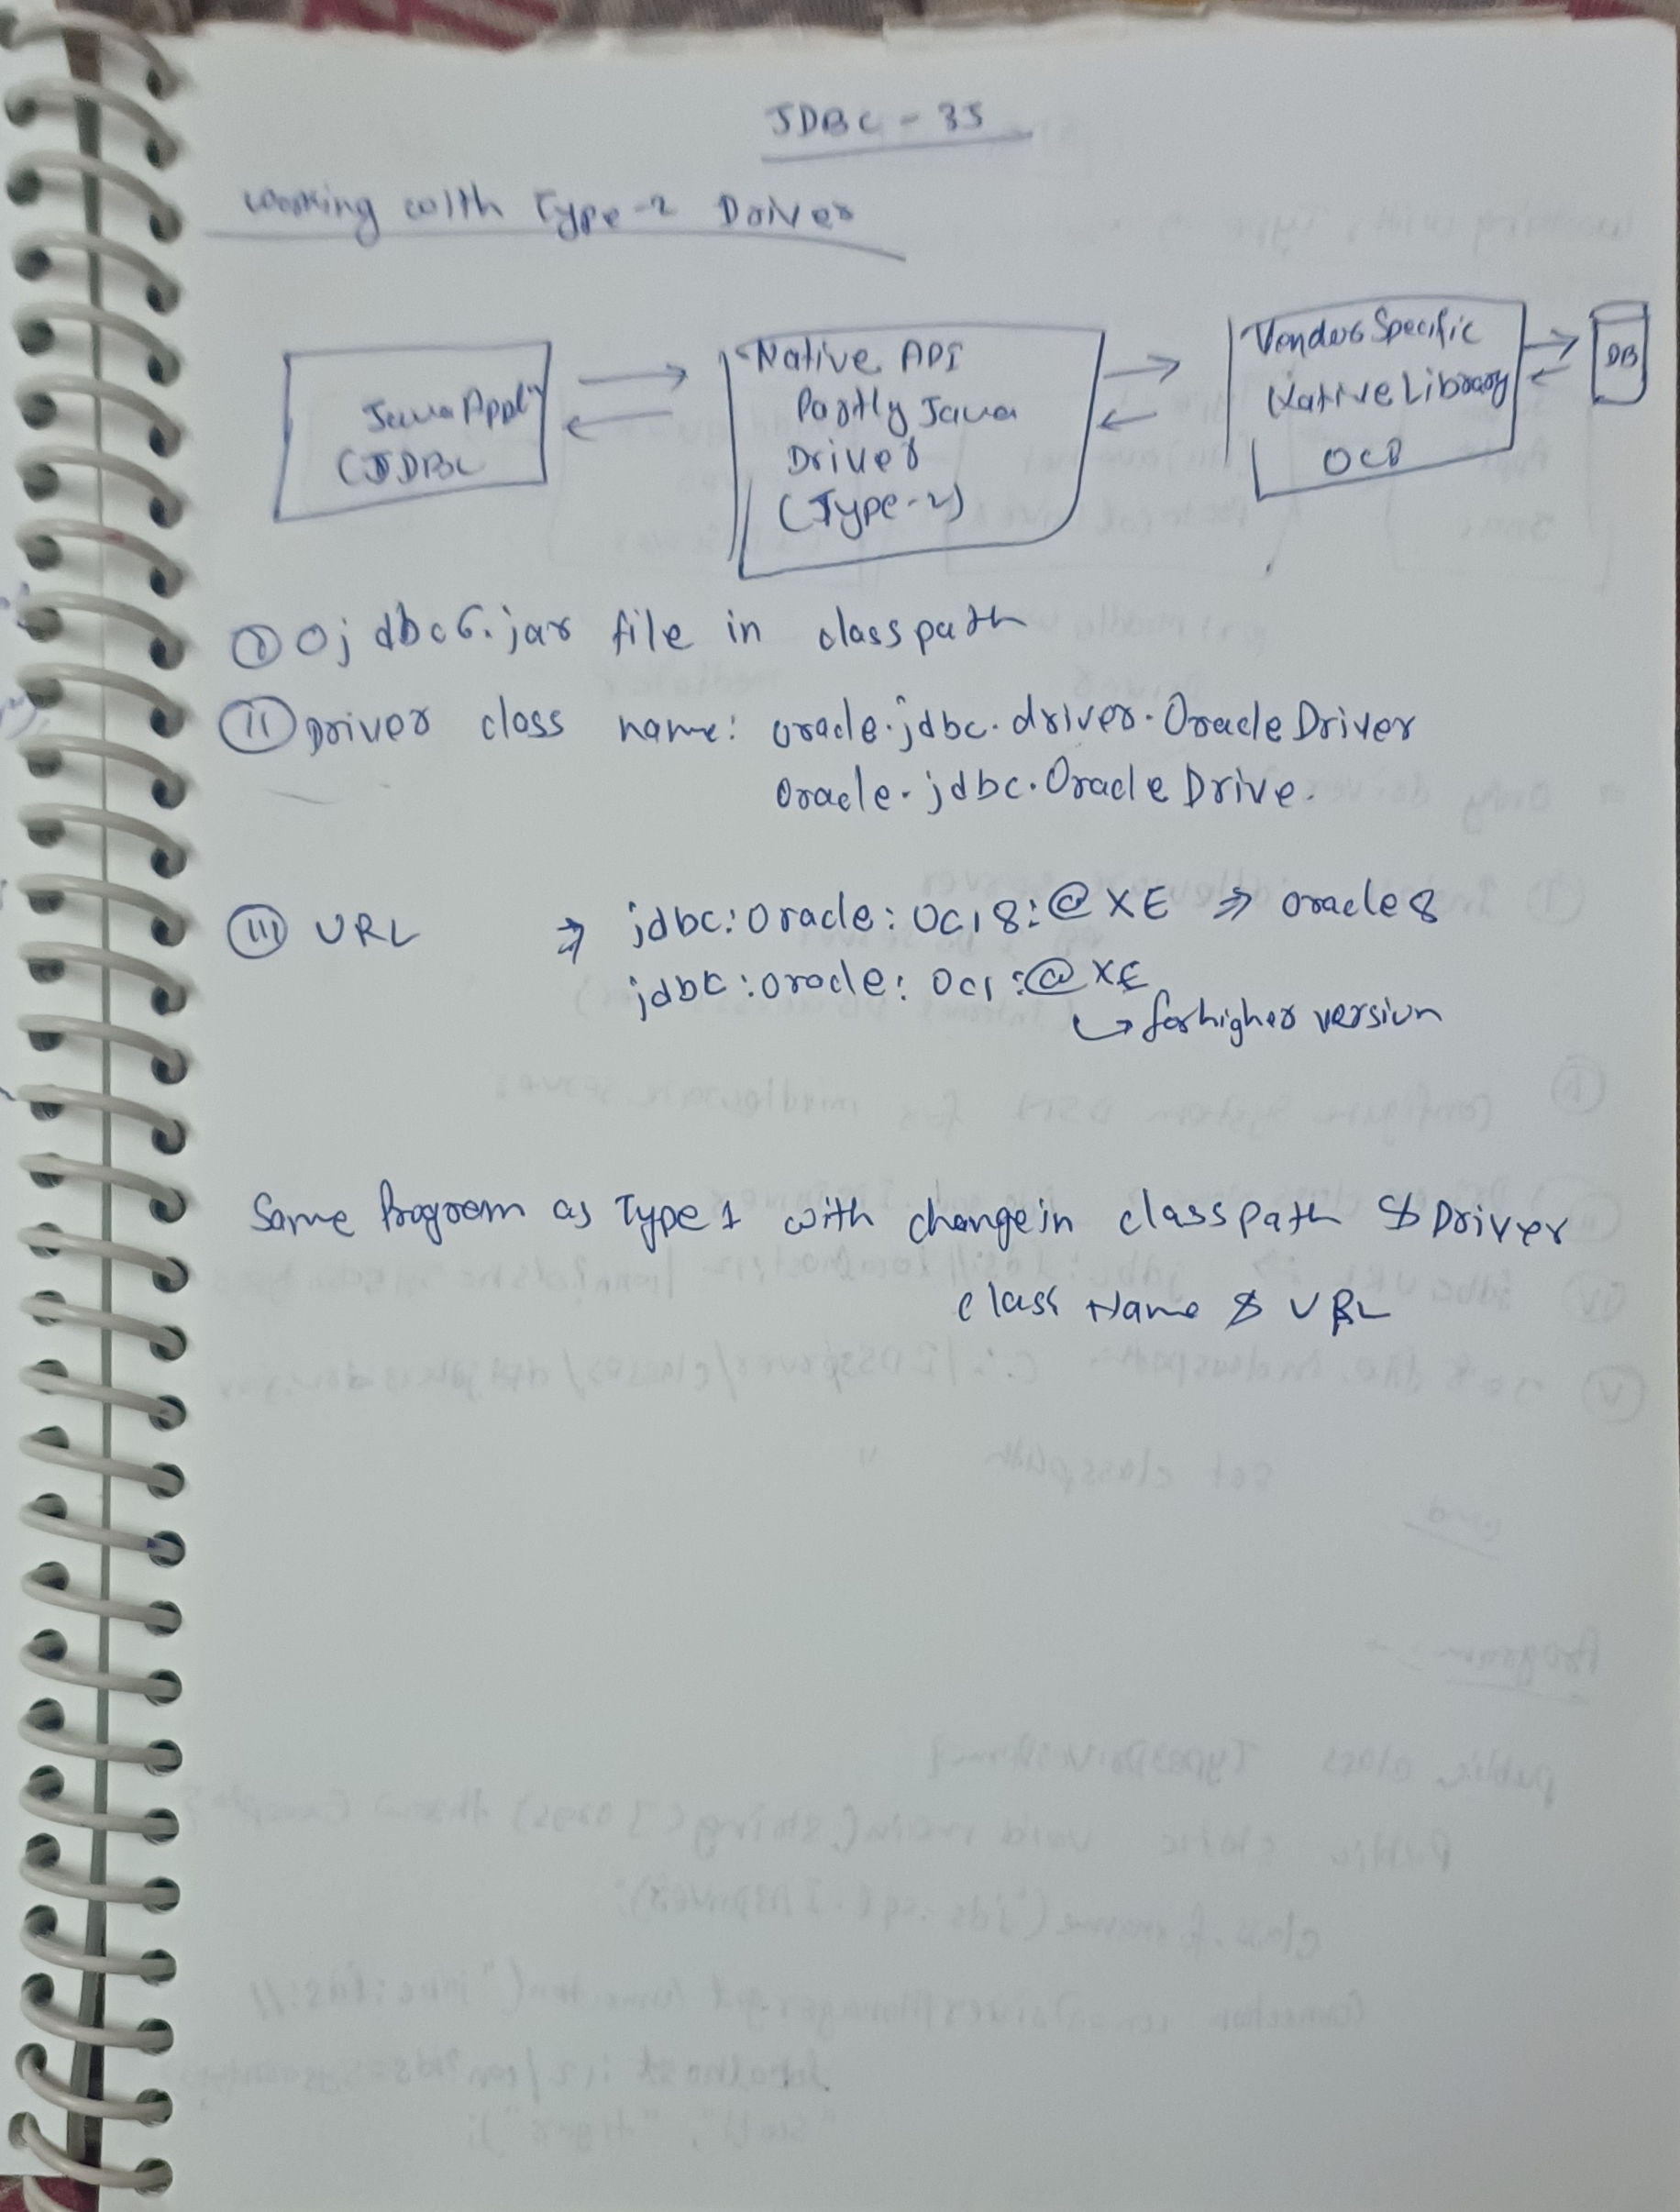 JDBC - 35
Working with Type-2 Driver
Java Appln
(JDBC
Native API
Partly Java
Driver
(Type-2)
Vendor Specific
Native Library
OCD
DB
(i) Ojdbc6.jar file in classpath
(ii) Driver class name: oracle.jdbc.driver.OracleDriver
Oracle.jdbc.OracleDrive.
(iii) URL ⇒ jdbc:oracle:oci8:@XE ⇒ oracle8
jdbc:oracle:oci:@XE
↳ for higher version
Same Program as Type 1 with change in classpath & Driver
class Name & URL